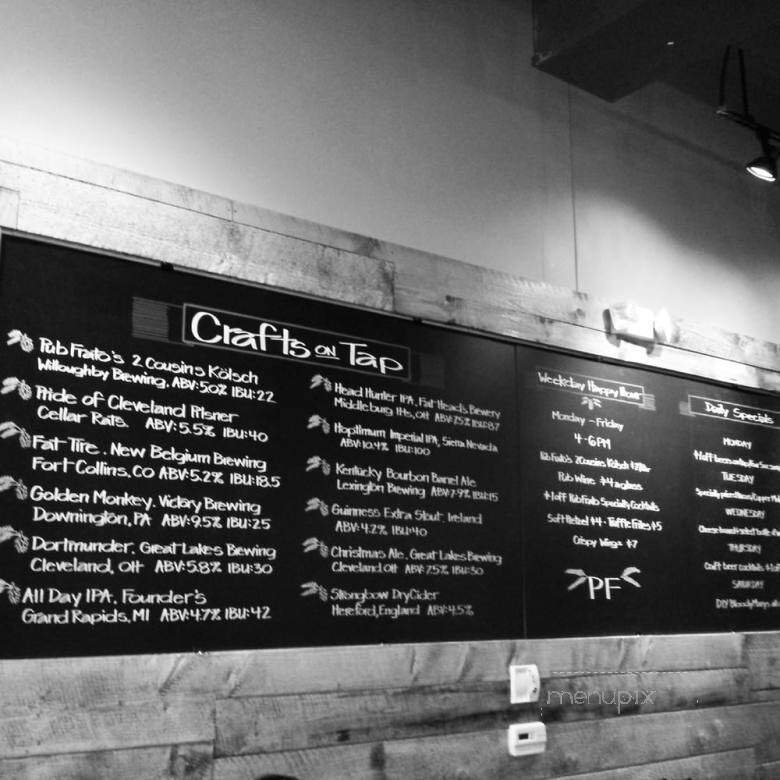 Crafts ON Tap
Pub Frato's 2 Cousins Kölsch
Willoughby Brewing. ABV:5.0% IBU:22
Pride of Cleveland Pilsner
Cellar Rats. ABV:5.5% IBU:40
Fat Tire. New Belgium Brewing
Fort Collins, CO ABV:5.2% IBU:18.5
Golden Monkey. Victory Brewing
Downington, PA ABV:9.5% IBU:25
Dortmunder. Great Lakes Brewing
Cleveland, OH ABV:5.8% IBU:30
All Day IPA. Founder's
Grand Rapids, MI ABV:4.7% IBU:42
Head Hunter IPA, Fat Heads Brewery
Middleburg Hts, OH ABV:7.5% IBU:87
Hoptimum Imperial IPA, Sierra Nevada
ABV:10.4% IBU:100
Kentucky Bourbon Barrel Ale
Lexington Brewing ABV:7.9% IBU:15
Guinness Extra Stout. Ireland
ABV:4.2% IBU:40
Christmas Ale. Great Lakes Brewing
Cleveland OH ABV:7.5% IBU:30
Strongbow Dry Cider
Hereford, England ABV:4.5%
Weekday Happy Hour
Monday - Friday
4-6PM
Pub Frato's 2 Cousins Kölsch
Pub Wine $4 a glass
$1 off Pub Frato Specialty Cocktails
Soft Pretzel $4 - Truffle Fries $5
Crispy Wings $7
PF
Daily Specials
MONDAY
TUESDAY
WEDNESDAY
THURSDAY
Craft beer cocktails
SATURDAY
DIY Bloody Marys
menupix